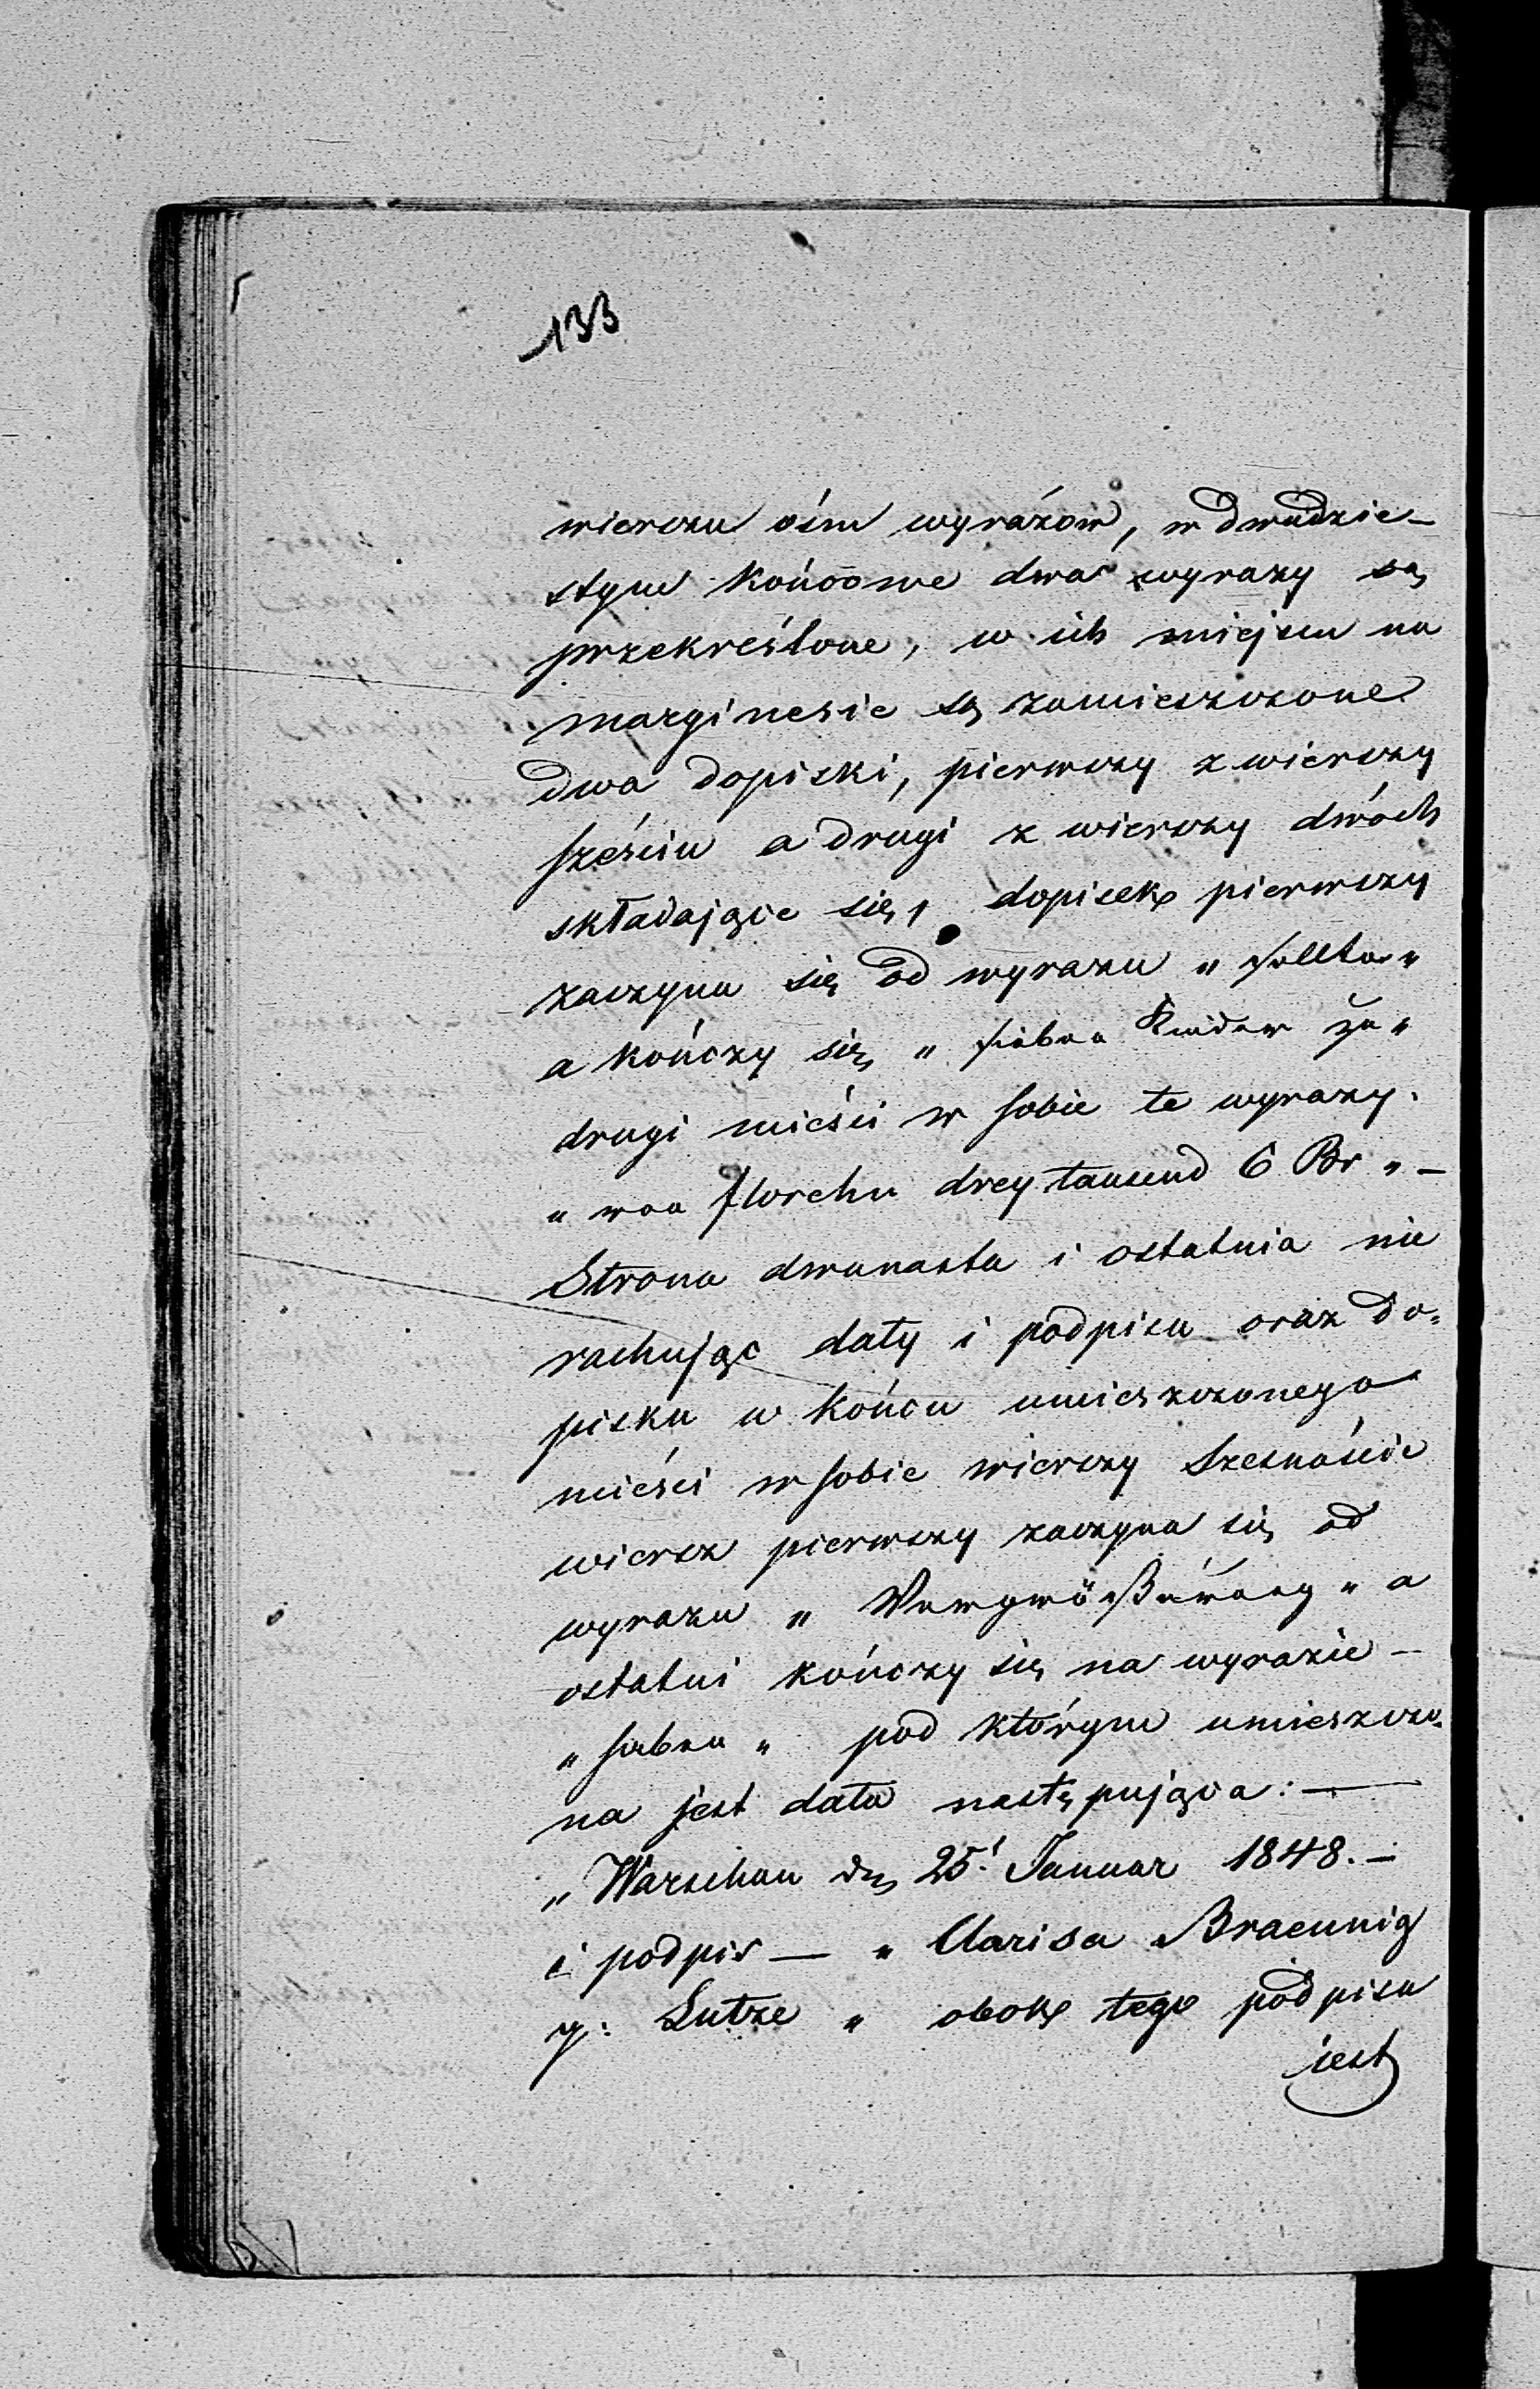 133
wierszu ośm wyrazów, w dwudzie-
stym końcowe dwa wyrazy są
przekreślone, w ich miejscu na
marginesie są zamieszczone
dwa dopiski, pierwszy z wierszy
sześciu a drugi z wierszy dwóch
składające się, dopisek pierwszy
zaczyna się od wyrazu „ sollte „
a kończy się „ Kinder zu „
drugi mieści w sobie te wyrazy.
„ drey tausend 6 Br „ -
Strona dwunasta i ostatnia nie
rachując daty i podpisu oraz do=
pisku w końcu umieszczonego
mieści w sobie wierszy szesnaście
wiersz pierwszy zaczyna się od
wyrazu „ „ a
ostatni kończy się na wyrazie -
„ haben „ pod którym umieszczo=
na jest data następująca: -
„ Warschau den 25t Januar 1848. -
i podpis — „ Clarisa Braeunig
g: Lutze „ obok tego podpisu
jest